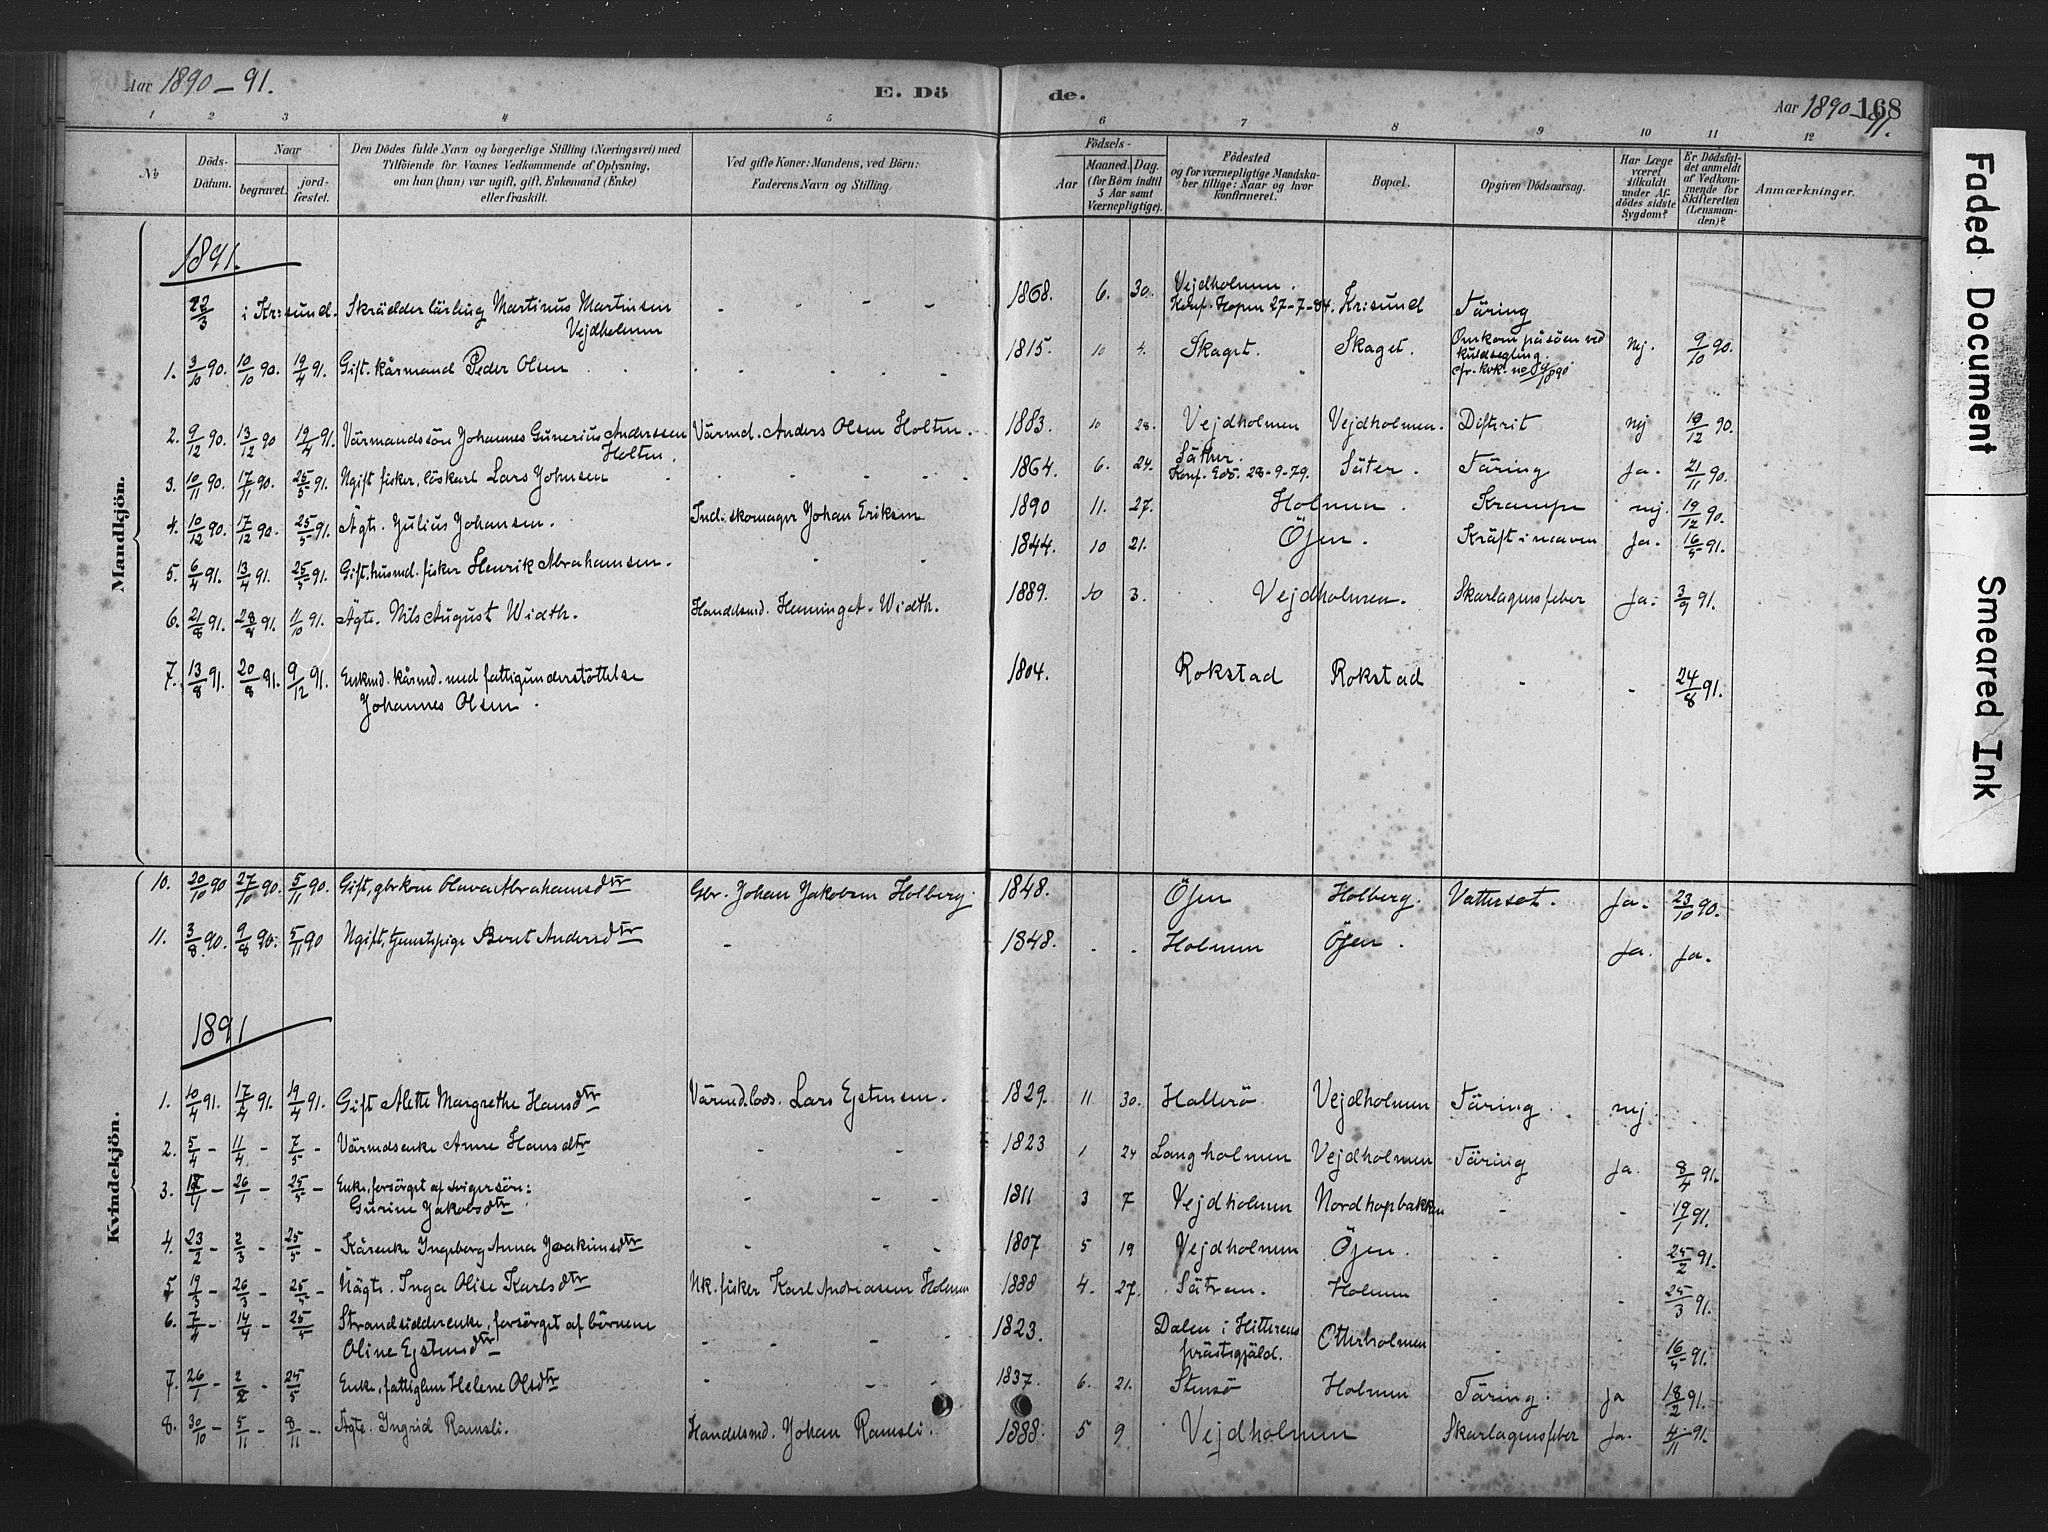 Aar 1890-91.
E. Dö de.
Aar 1890-91. 168
1 2 3 4 5 6 7 8 9 10 11 12
No
Döds-Datum.
Naar
begravet. jord-fæstet.
Den Dödes fulde Navn og borgerlige Stilling (Næringsvei) med
Tilföiende for Voxnes Vedkommende af Oplysning,
om han (hun) var ugift, gift, Enkemand (Enke)
eller fraskilt.
Ved gifte Koner: Mandens, ved Börn:
Faderens Navn og Stilling.
Födsels-
Aar Maaned. Dag.
(for Börn indtil
5 Aar samt
Værnepligtige).
Födested
og for værnepligtige Mandska-
ber tillige: Naar og hvor
konfirmeret.
Bopæl.
Opgiven Dödsaarsag.
Har Læge
været
tilkaldt
under Af-
dödes sidste
Sygdom?
Er Dödsfal-
det anmeldt
af Vedkom-
mende for
Skifteretten
(Lensman-
den)?
Anmærkninger.
Mandkjön.
1891.
22/3 i Kr:sund. Skrädderlärling Martinus Martinsen Vejdholmen - - - - 1868. 6. 30. Vejdholmen. Konf. Kopen 27-7-84. Kr:sund Täring
1. 3/10 90. 10/10 90. 19/4 91. Gift. kårmand Peder Olsen 1815. 10 4. Skaget. Skaget. Omkom på söen ved kuldsegling. cfr. kok. no 84/1890 nej. 9/10 90.
2. 9/12 90. 13/12 90 19/4 91. Värmandssön Johannes Gunerius Anderssen Holten. Värmd. Anders Olsen Holten. 1883. 10 28. Vejdholmen Vejdholmen. Difterit nej 19/12 90.
3. 10/11 90. 17/11 90. 25/5 91. Ugift fisker, löskarl Lars Johnsen 1864. 6. 24. Säther. Konf. Edö. 28-9-79. Säter. Täring Ja. 21/11 90.
4. 10/12 90. 17/12 90. 25/5 91. Ägte. Julius Johansen. Ind. skomager Johan Eriksen 1890 11. 27. Holmen. Krampe nej. 19/12 90.
5. 6/4 91. 13/4 91. 25/5 91. Gift. husmd. fisker Henrik Abrahamsen. 1844. 10 21. Öjen. Kräft i maven Ja. 16/5 91.
6. 21/8 91. 28/8 91. 11/10 91. Ägte. Nils August Width. Handelsmd. Heminget. Width. 1889. 10 3. Vejdholmen. Skarlagensfeber Ja. 3/9 91.
7. 13/8 91. 20/8 91. 9/12 91. Enkmd. kårmd. med fattigunderstöttelse Johannes Olsen. 1804. Rokstad Rokstad - - 24/8 91.
Kvindekjön.
10. 20/10 90 27/10 90. 5/11 90. Gift, gbrkone Olava Abrahamsdtr Gbr. Johan Jakobsen Holberg. 1848. Öjen Holberg. Vattersot. Ja. 23/10 90.
11. 3/8 90. 9/8 90. 5/11 90 Ugift, tjenstepige Beret Andersdtr - 1848. - - Holmen Öjen. Ja. Ja.
1891
1. 10/4 91. 17/4 91. 19/4 91. Gift Alette Margrethe Hansdtr Värmd. lods. Lars Ejstensen. 1829. 11 30. Hallerö Vejdholmen Täring. nej
2. 5/4 - 11/4 - 7/5 - Värmdsenke Anne Hansdtr - - 1823 1 24 Langholmen Vejdholmen Täring Ja. 8/4 91.
3. 1/1 - 26/1 - 25/5 - Enke, forsörget af svigersön: Gurine Jakobsdtr - - - 1811 3 7 Vejdholmen Nordhopbakken - - 19/1 91.
4. 23/2 - 2/3 - 25/5 - Kårenke Ingeborg Anna Joakimsdtr - - - 1807 5 19 Vejdholmen Öjen. - - 25/2 91.
5 19/3 - 26/3 - 25/5 - Uägte. Inga Olise Karlsdtr Uk. fisker Karl Andreasen Holmen 1888 4. 27. Sätran. Holmen - - 25/3 91.
6. 7/4 - 14/4 - 25/5 Strandsidderenke, forsörget af börnene Oline Ejstensdtr - - - 1823. Dalen i Hitterens prästegjäld. Otterholmen - 16/5 91.
7. 26/1 - 2/2 - 25/5 Enke, fattiglem Helene Olsdtr - - - 1837. 6. 21. Stensö Holmen Täring. Ja 18/2 91.
8. 30/10 - 5/11 - 8/11 - Ägte. Ingrid Ramsli. Handelsmd. Johan Ramsli. 1888. 5 9. Vejdholmen Skarlagensfeber Ja. 4/11 91.
Faded Document
Smeared Ink